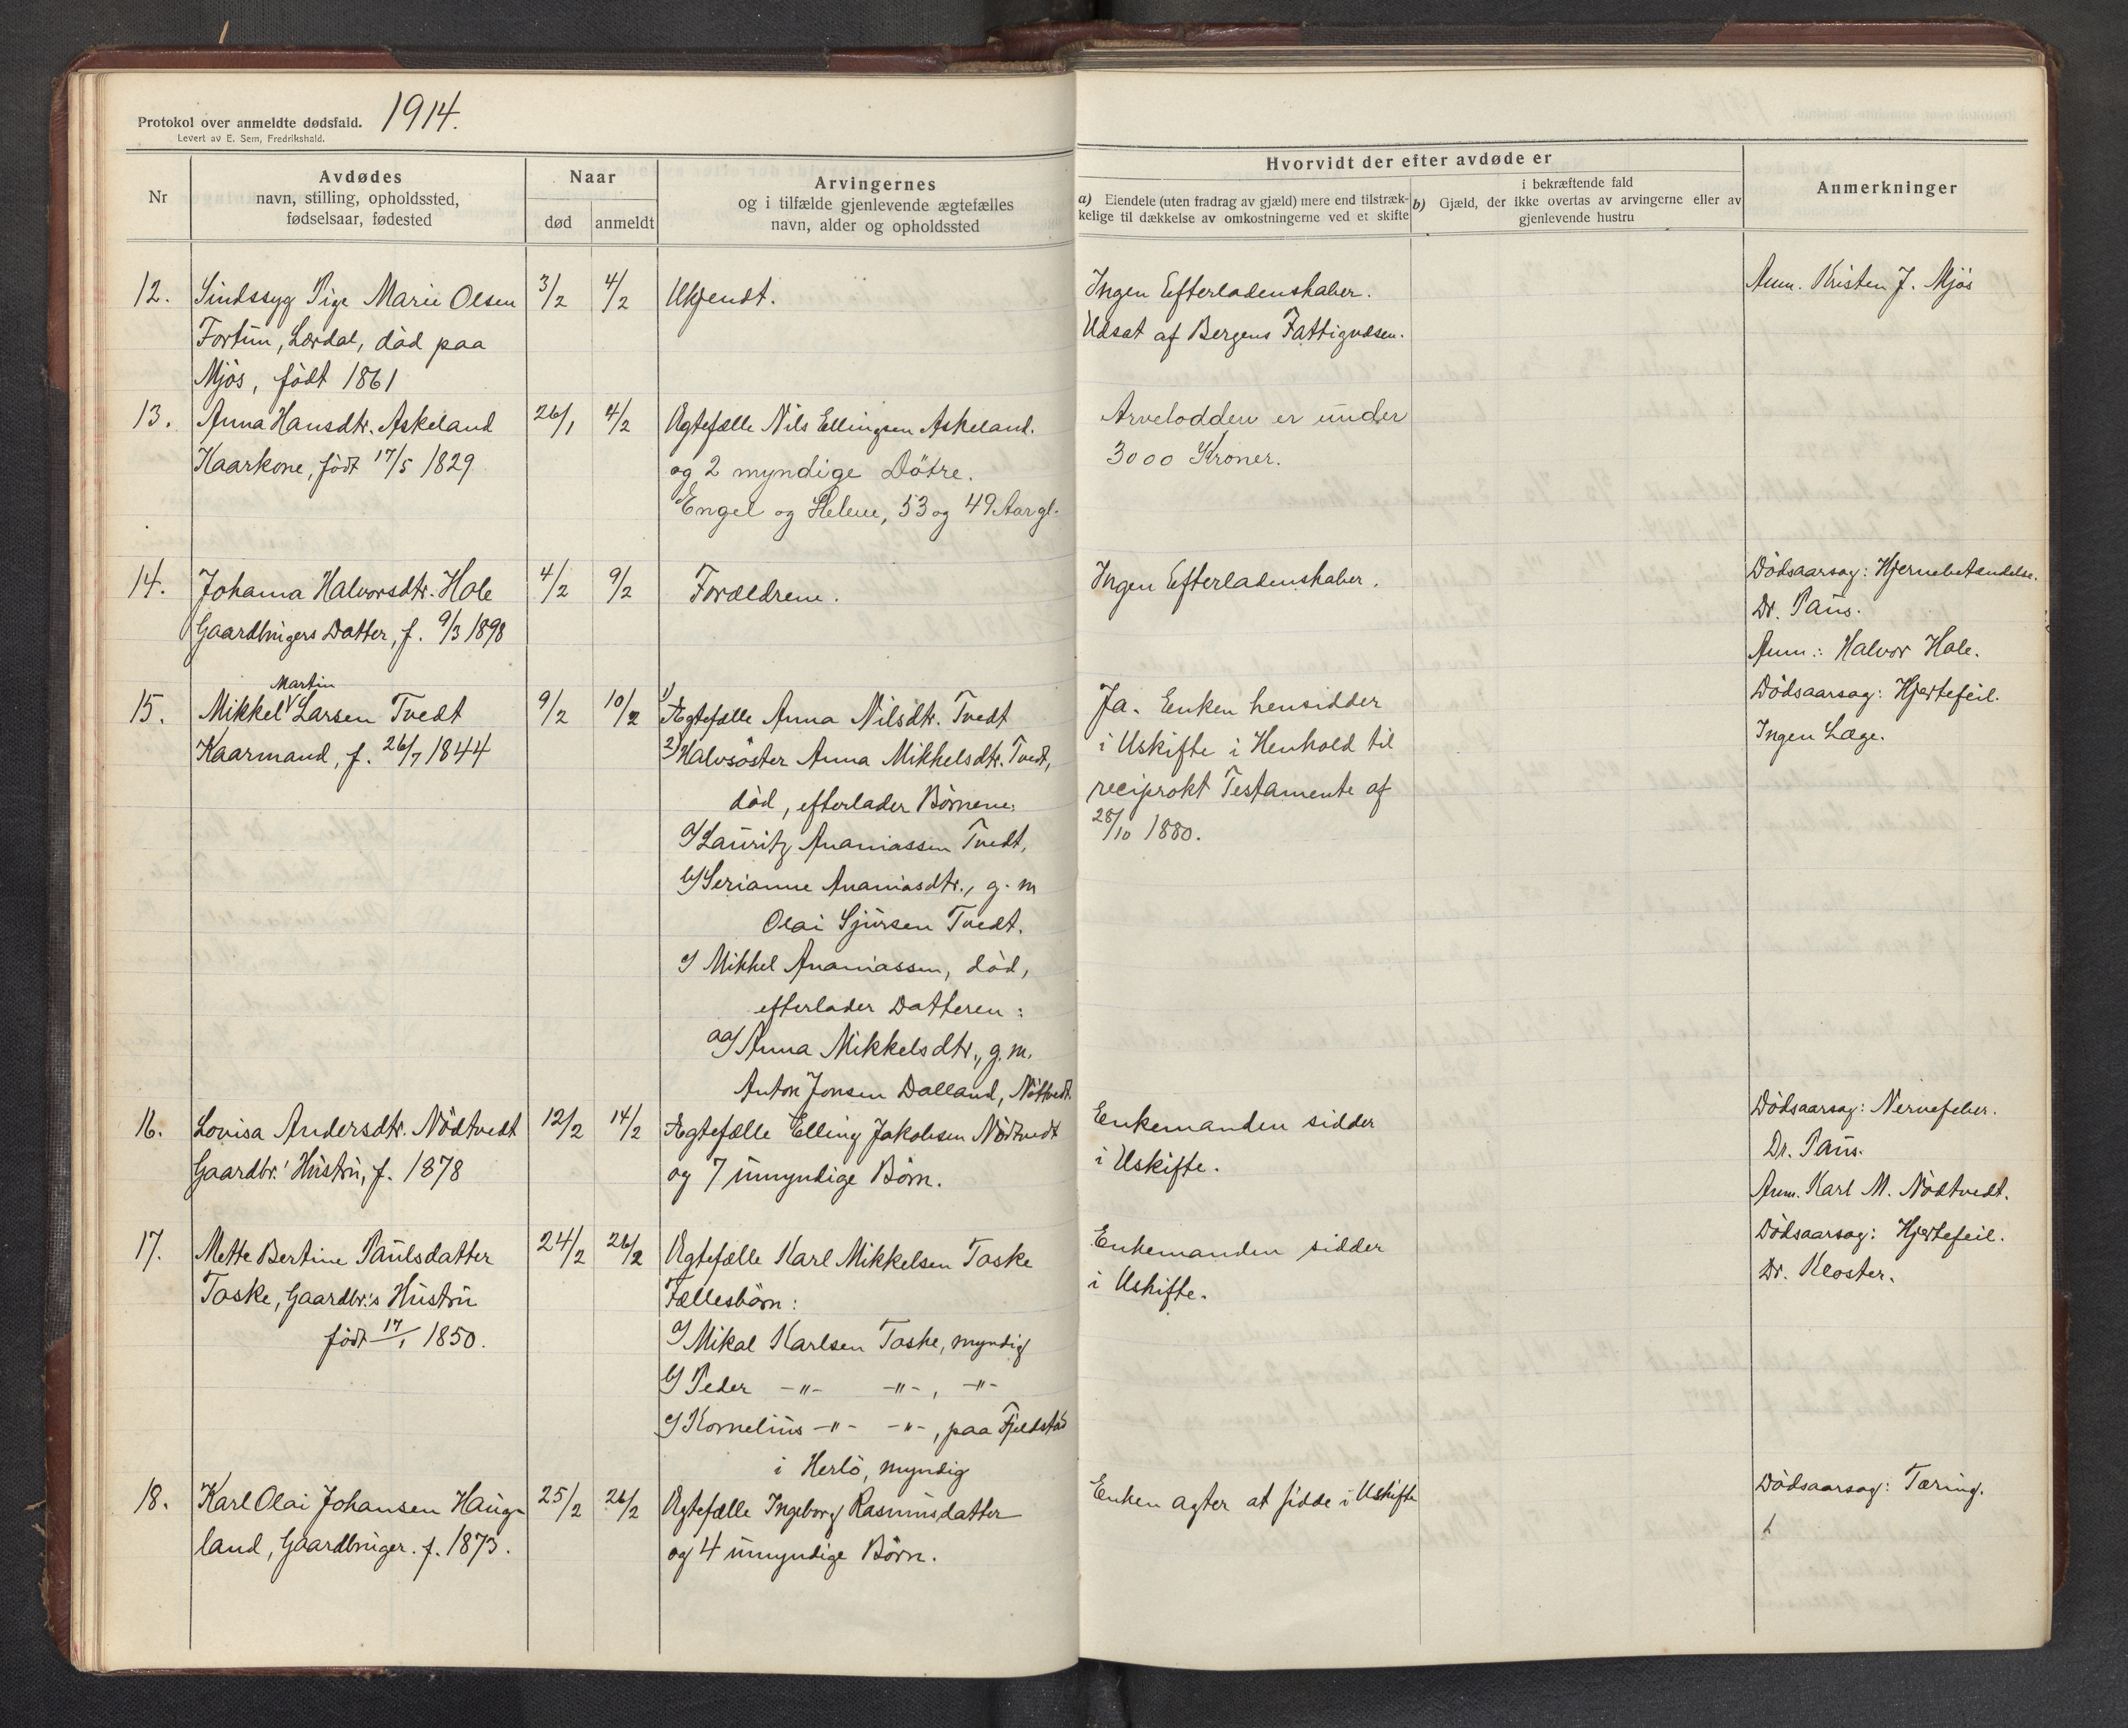 Protokol over anmeldte dødsfald. 1914.
Levert av E. Sem, Fredrikshald.
Nr
Avdødes
navn, stilling, opholdssted,
fødselsaar, fødested
Naar
død
anmeldt
Arvingernes
og i tilfælde gjenlevende ægtefælles
navn, alder og opholdssted
Hvorvidt der efter avdøde er
a) Eiendele (uten fradrag av gjæld) mere end tilstræk-
kelige til dækkelse av omkostningerne ved et skifte
i bekræftende fald
b) Gjæld, der ikke overtas av arvingerne eller av
gjenlevende hustru
Anmerkninger
12. Sindssyg Pige Marie Olsen
Fortun, Lærdal, död paa
Mjös, födt 1861
3/2
4/2
Ukjendt.
Ingen Efterladenskaber.
Udsat af Bergens Fattigvæsen.
Anm. Kristen J. Mjös
13. Anna Hansdtr. Askeland
Kaarkone, födt 17/5 1829
26/1
4/2
Ægtefælle Nils Ellingsen Askeland.
og 2 myndige Döfre.
Engel og Helene, 53 og 49 Aar gl.
Arvelodden er under
3000 Kroner.
14. Johanna Halvorsdtr. Hole
Gaardbrugers Datter, f. 9/3 1898
4/2
9/2
Forældrene.
Ingen Efterladenskaber.
Dödsaarsag: Hjernebetændelse.
Dr. Paus.
Anm.: Halvor Hole.
15. Mikkel Martin Larsen Tvedt
Kaarmand, f. 26/7 1844
9/2
10/2
1) Ægtefælle Anna Nilsdtr. Tvedt
2) Halvsöster Anna Mikkelsdtr. Tvedt,
död, efterlader Börnene:
a/ Lauritz Ananiassen Tvedt,
b/ Serianne Ananiasdtr., g. m
Olai Sjursen Tvedt.
c/ Mikkel Ananiassen, död,
efterlader Datteren:
aa/ Anna Mikkelsdtr., g. m.
Anton Jonsen Dalland, Nöttvedt.
Ja. Enken hensidder
i Uskifte i Henhold til
reciprokt Testamente af
28/10 1880.
Dödsaarsag: Hjertefeil.
Ingen Læge.
16. Lovisa Andersdtr. Nödtvedt
Gaardbr.' Hustru, f. 1878
12/2
14/2
Ægtefælle Elling Jakobsen Nödtvedt
og 7 umyndige Börn.
Enkemanden sidder
i Uskifte.
Dödsaarsag: Nervefeber.
Dr. Paus.
Anm. Karl M. Nödtvedt.
17. Mette Bertine Paulsdatter
Toske, Gaardbr.'s Hustru
födt 17/1 1850.
24/2
26/2
Ægtefælle Karl Mikkelsen Toske
Fællesbörn:
a/ Mikal Karlsen Toske, myndig
b/ Peder -"- -"-, -"-
c/ Kornelius -"- -"-, paa Fjeldstad
i Herlö, myndig
Enkemanden sidder
i Uskifte.
Dödsaarsag: Hjertefeil.
Dr. Kloster.
18. Karl Olai Johansen Haug-
land, Gaardbruger. f. 1873.
25/2
26/2
Ægtefælle Ingeborg Rasmusdatter
og 4 umyndige Börn.
Enken agter at sidde i Uskifte
Dödsaarsag: Tæring.